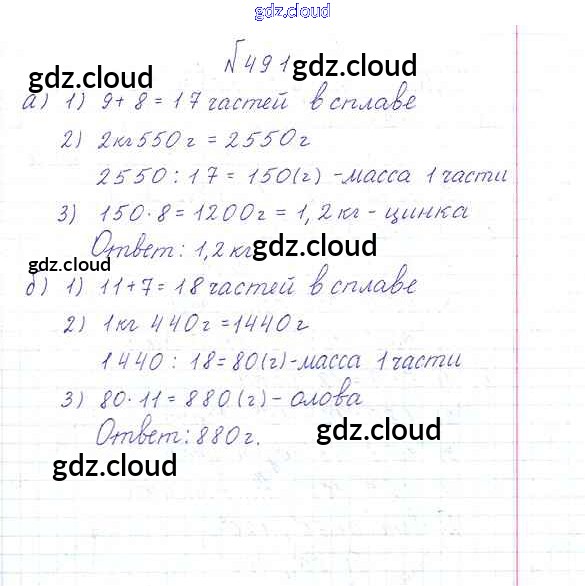 gdz.cloud
№491
gdz.cloud gdz.cloud
а) 1) 9+8=17 частей в сплаве
2) 2кг550г=2550г
2550:17=150(г)-масса 1 части
3) 150·8=1200г=1,2кг-цинка
Ответ: 1,2кг
gdz.cloud
gdz.cloud
б) 1) 11+7=18 частей в сплаве
2) 1кг 440г=1440г
1440:18=80(г)-масса 1 части
3) 80·11=880(г)-олова
Ответ: 880г.
gdz.cloud
gdz.cloud